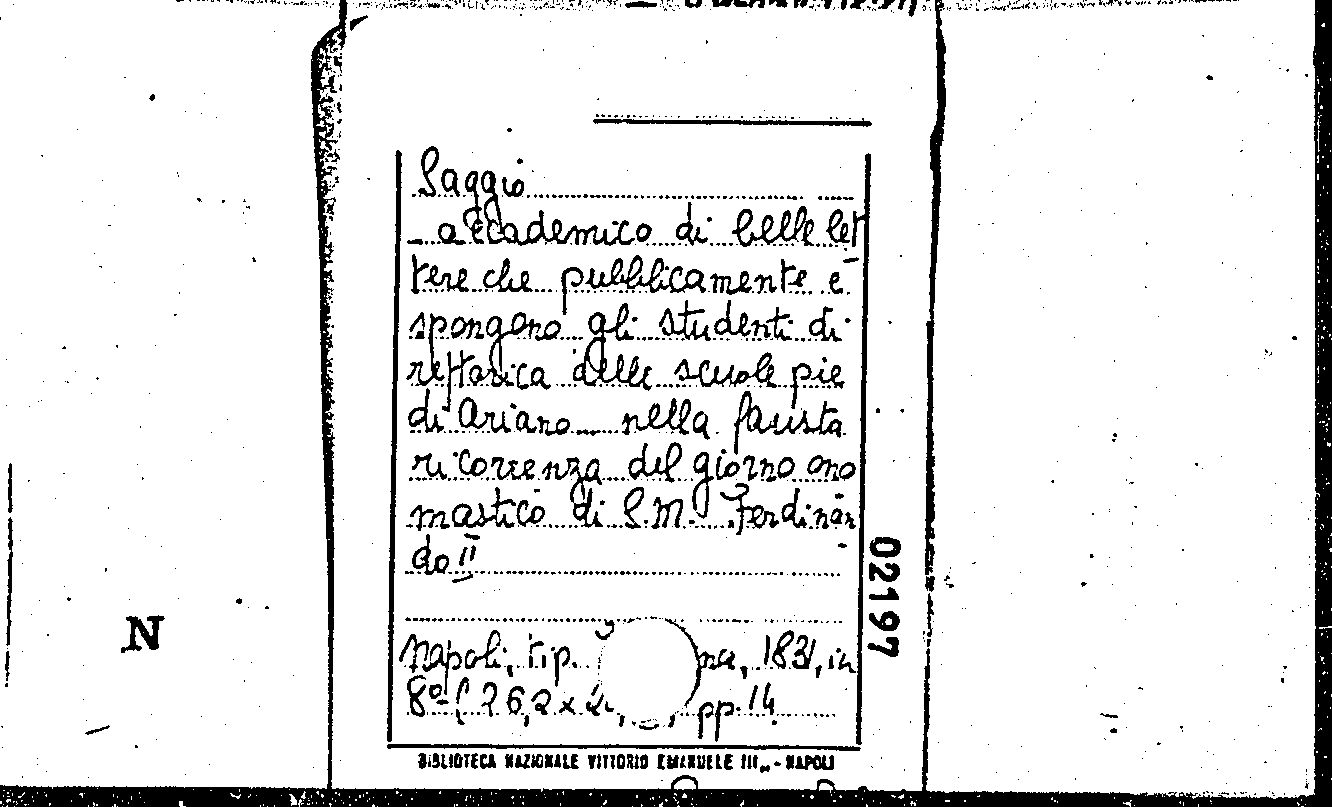 Saggio
accademico di belle let
tere che pubblicamente e
spongono gli studenti di
rettorica delle scuole pie
di Ariano nella fausta
ricorrenza del giorno ono
mastico di S.M. Ferdinan
do II
Napoli, tip. na, 1831, in
8º (26,2 x pp. 14
BIBLIOTECA NAZIONALE VITTORIO EMANUELE III - NAPOLI
02197
N